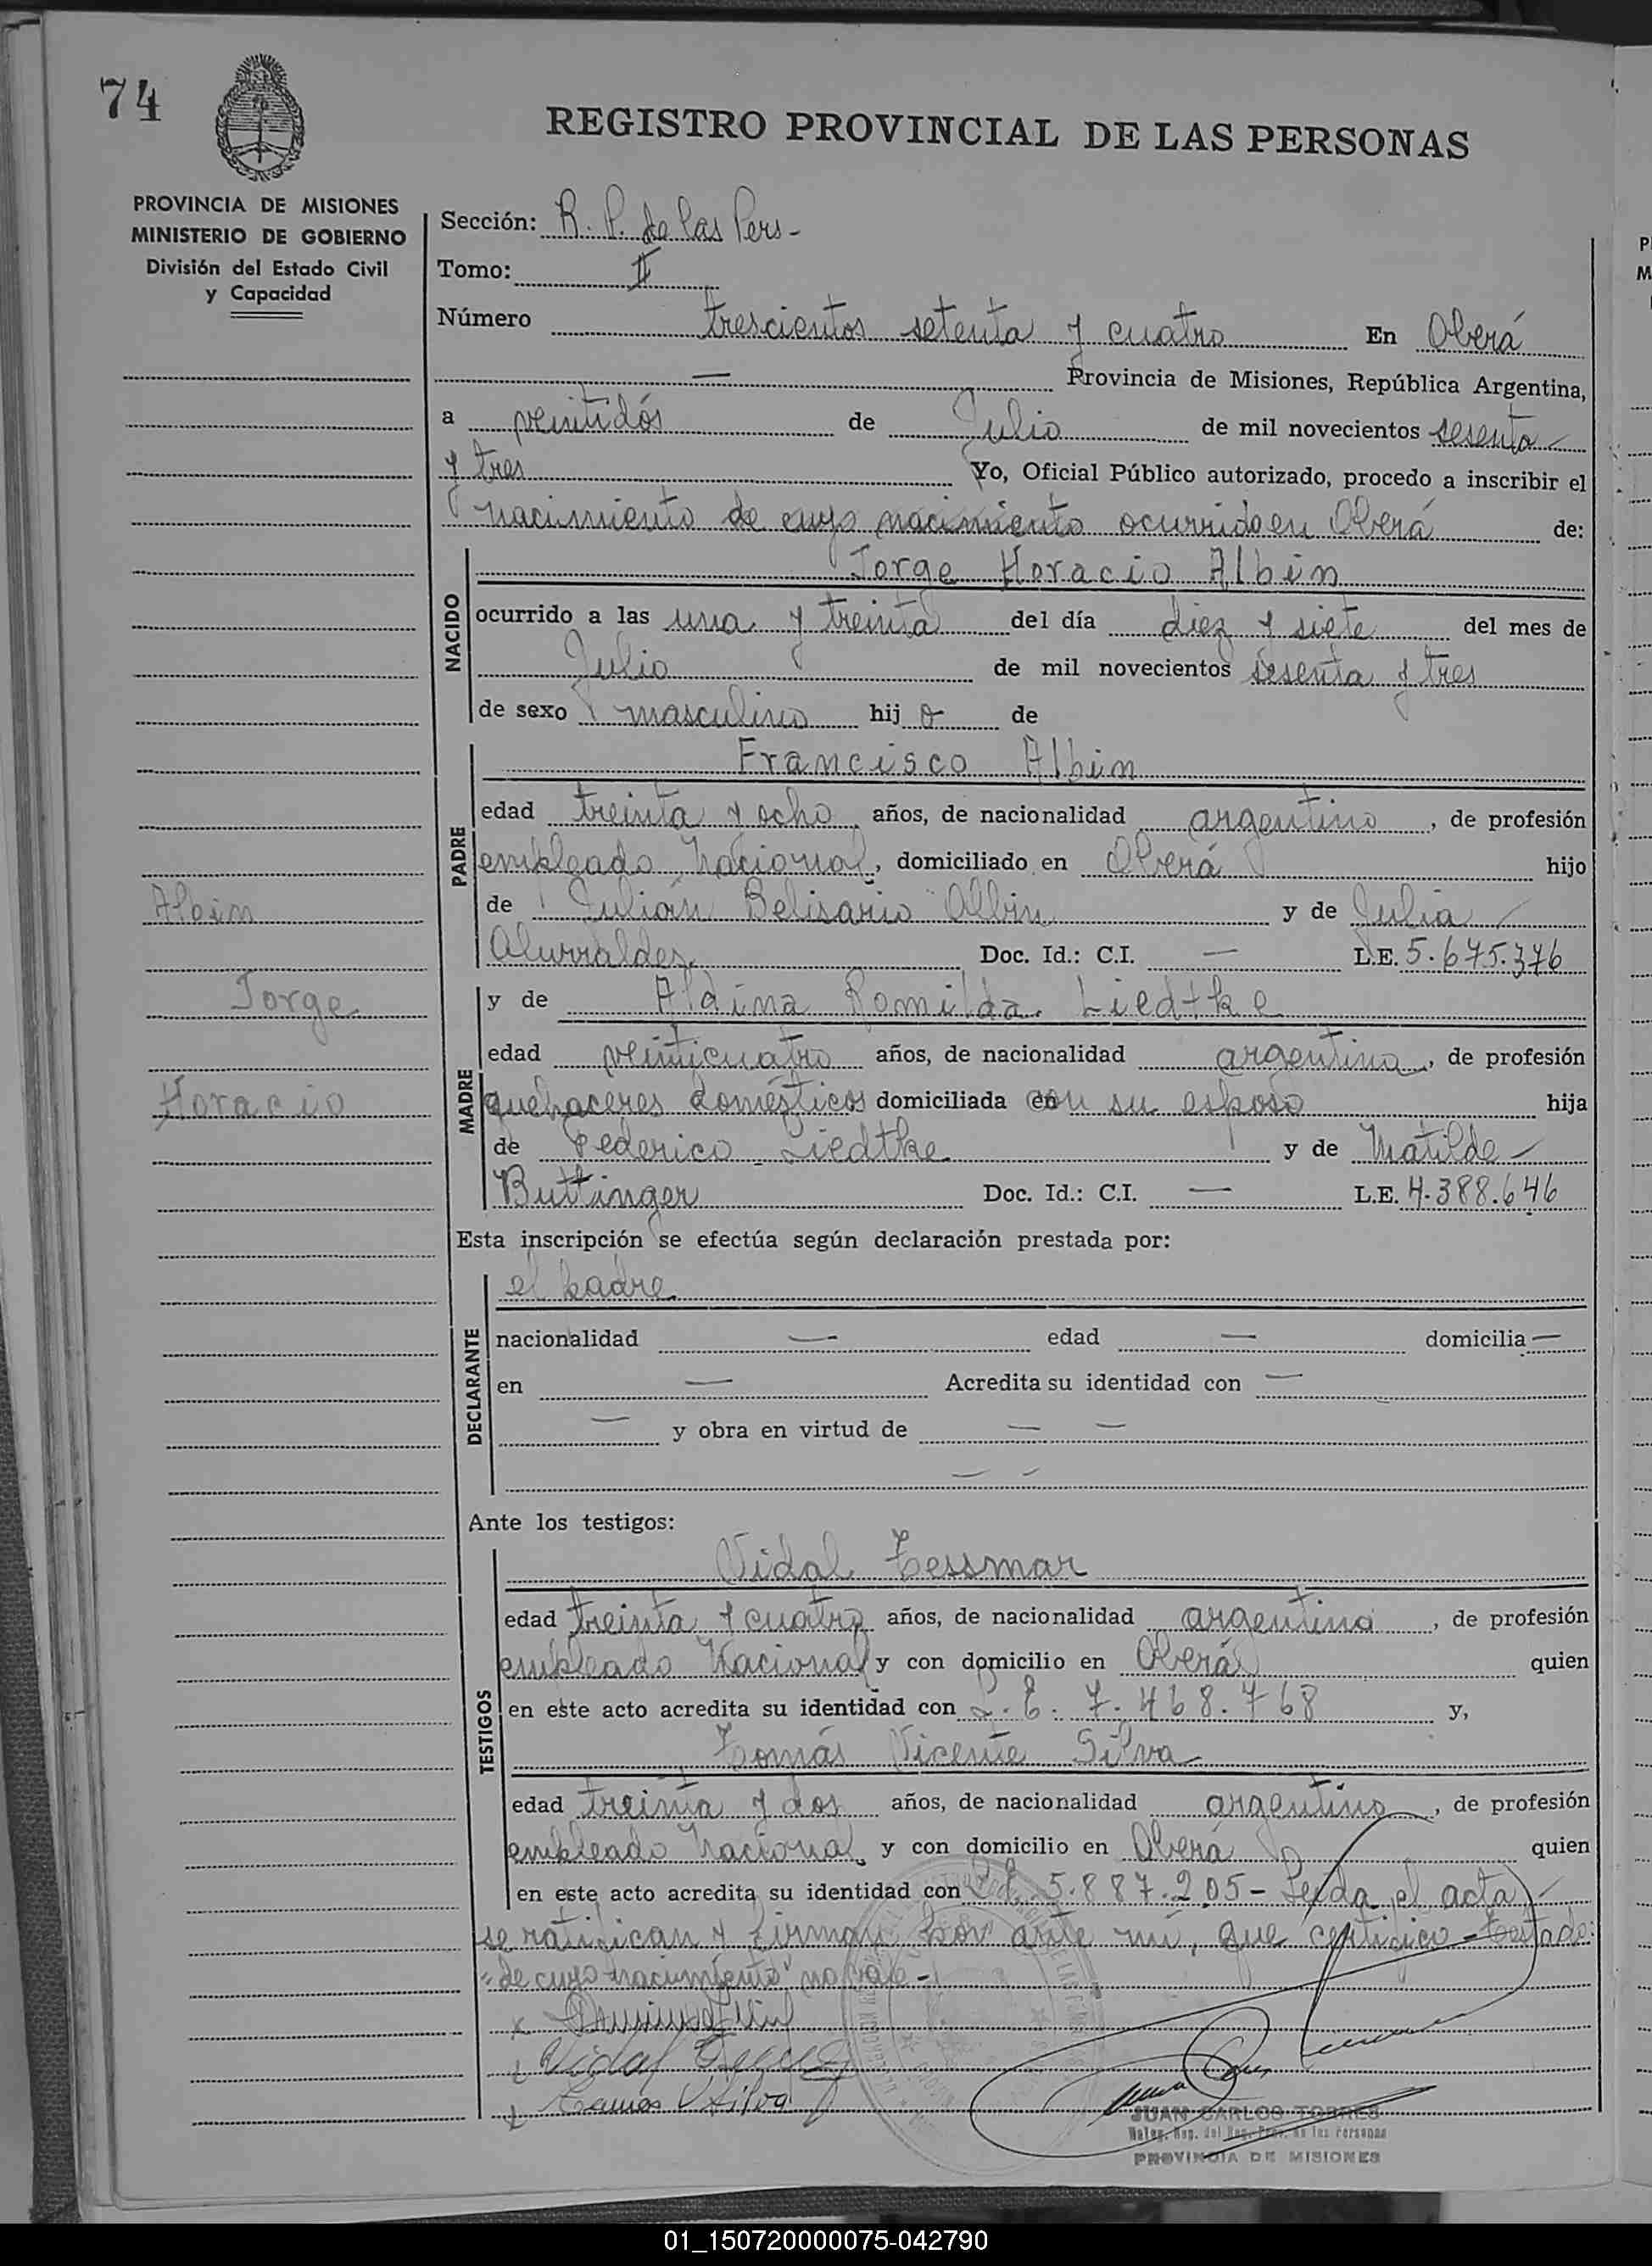 74
REGISTRO PROVINCIAL DE LAS PERSONAS
PROVINCIA DE MISIONES
MINISTERIO DE GOBIERNO
División del Estado Civil
y Capacidad
Sección: R. P. de las Pers-
Tomo: II
Número trescientos setenta y cuatro En Oberá
— Provincia de Misiones, República Argentina,
a veintidós de Julio de mil novecientos sesenta
y tres Yo, Oficial Público autorizado, procedo a inscribir el
nacimiento de cuyo nacimiento ocurrido en Oberá de:
NACIDO
Jorge Horacio Albin
ocurrido a las una y treinta del día diez y siete del mes de
Julio de mil novecientos sesenta y tres
de sexo masculino hij o de
PADRE
Francisco Albin
edad treinta y ocho años, de nacionalidad argentino, de profesión
empleado Nacional, domiciliado en Oberá hijo
de Julián Belisario Albin y de Julia
Alurralder Doc. Id.: C.I. — L.E. 5.675.376
Albin
Jorge
Horacio
MADRE
y de Aldina Romilda Liedtke
edad veinticuatro años, de nacionalidad argentina, de profesión
quehaceres domésticos domiciliada con su esposo hija
de Federico Liedtke y de Matilde
Buttinger Doc. Id.: C.I. — L.E. 4.388.646
Esta inscripción se efectúa según declaración prestada por:
DECLARANTE
el padre
nacionalidad — edad — domicilia —
en — Acredita su identidad con —
— y obra en virtud de — —
— —
Ante los testigos:
TESTIGOS
Vidal Tessmar
edad treinta y cuatro años, de nacionalidad argentina, de profesión
empleado Nacional y con domicilio en Oberá quien
en este acto acredita su identidad con L.E. 7.468.768 y,
Tomás Vicente Silva
edad treinta y dos años, de nacionalidad argentino, de profesión
empleado Nacional y con domicilio en Oberá quien
en este acto acredita su identidad con L.E. 5.887.205- Leída el acta,
se ratifican y firman por ante mí, que certifico - Testado:
"de cuyo nacimiento" no vale-
Vidal
Tomás V Silva
JUAN CARLOS TORRES
PROVINCIA DE MISIONES
01_150720000075-042790